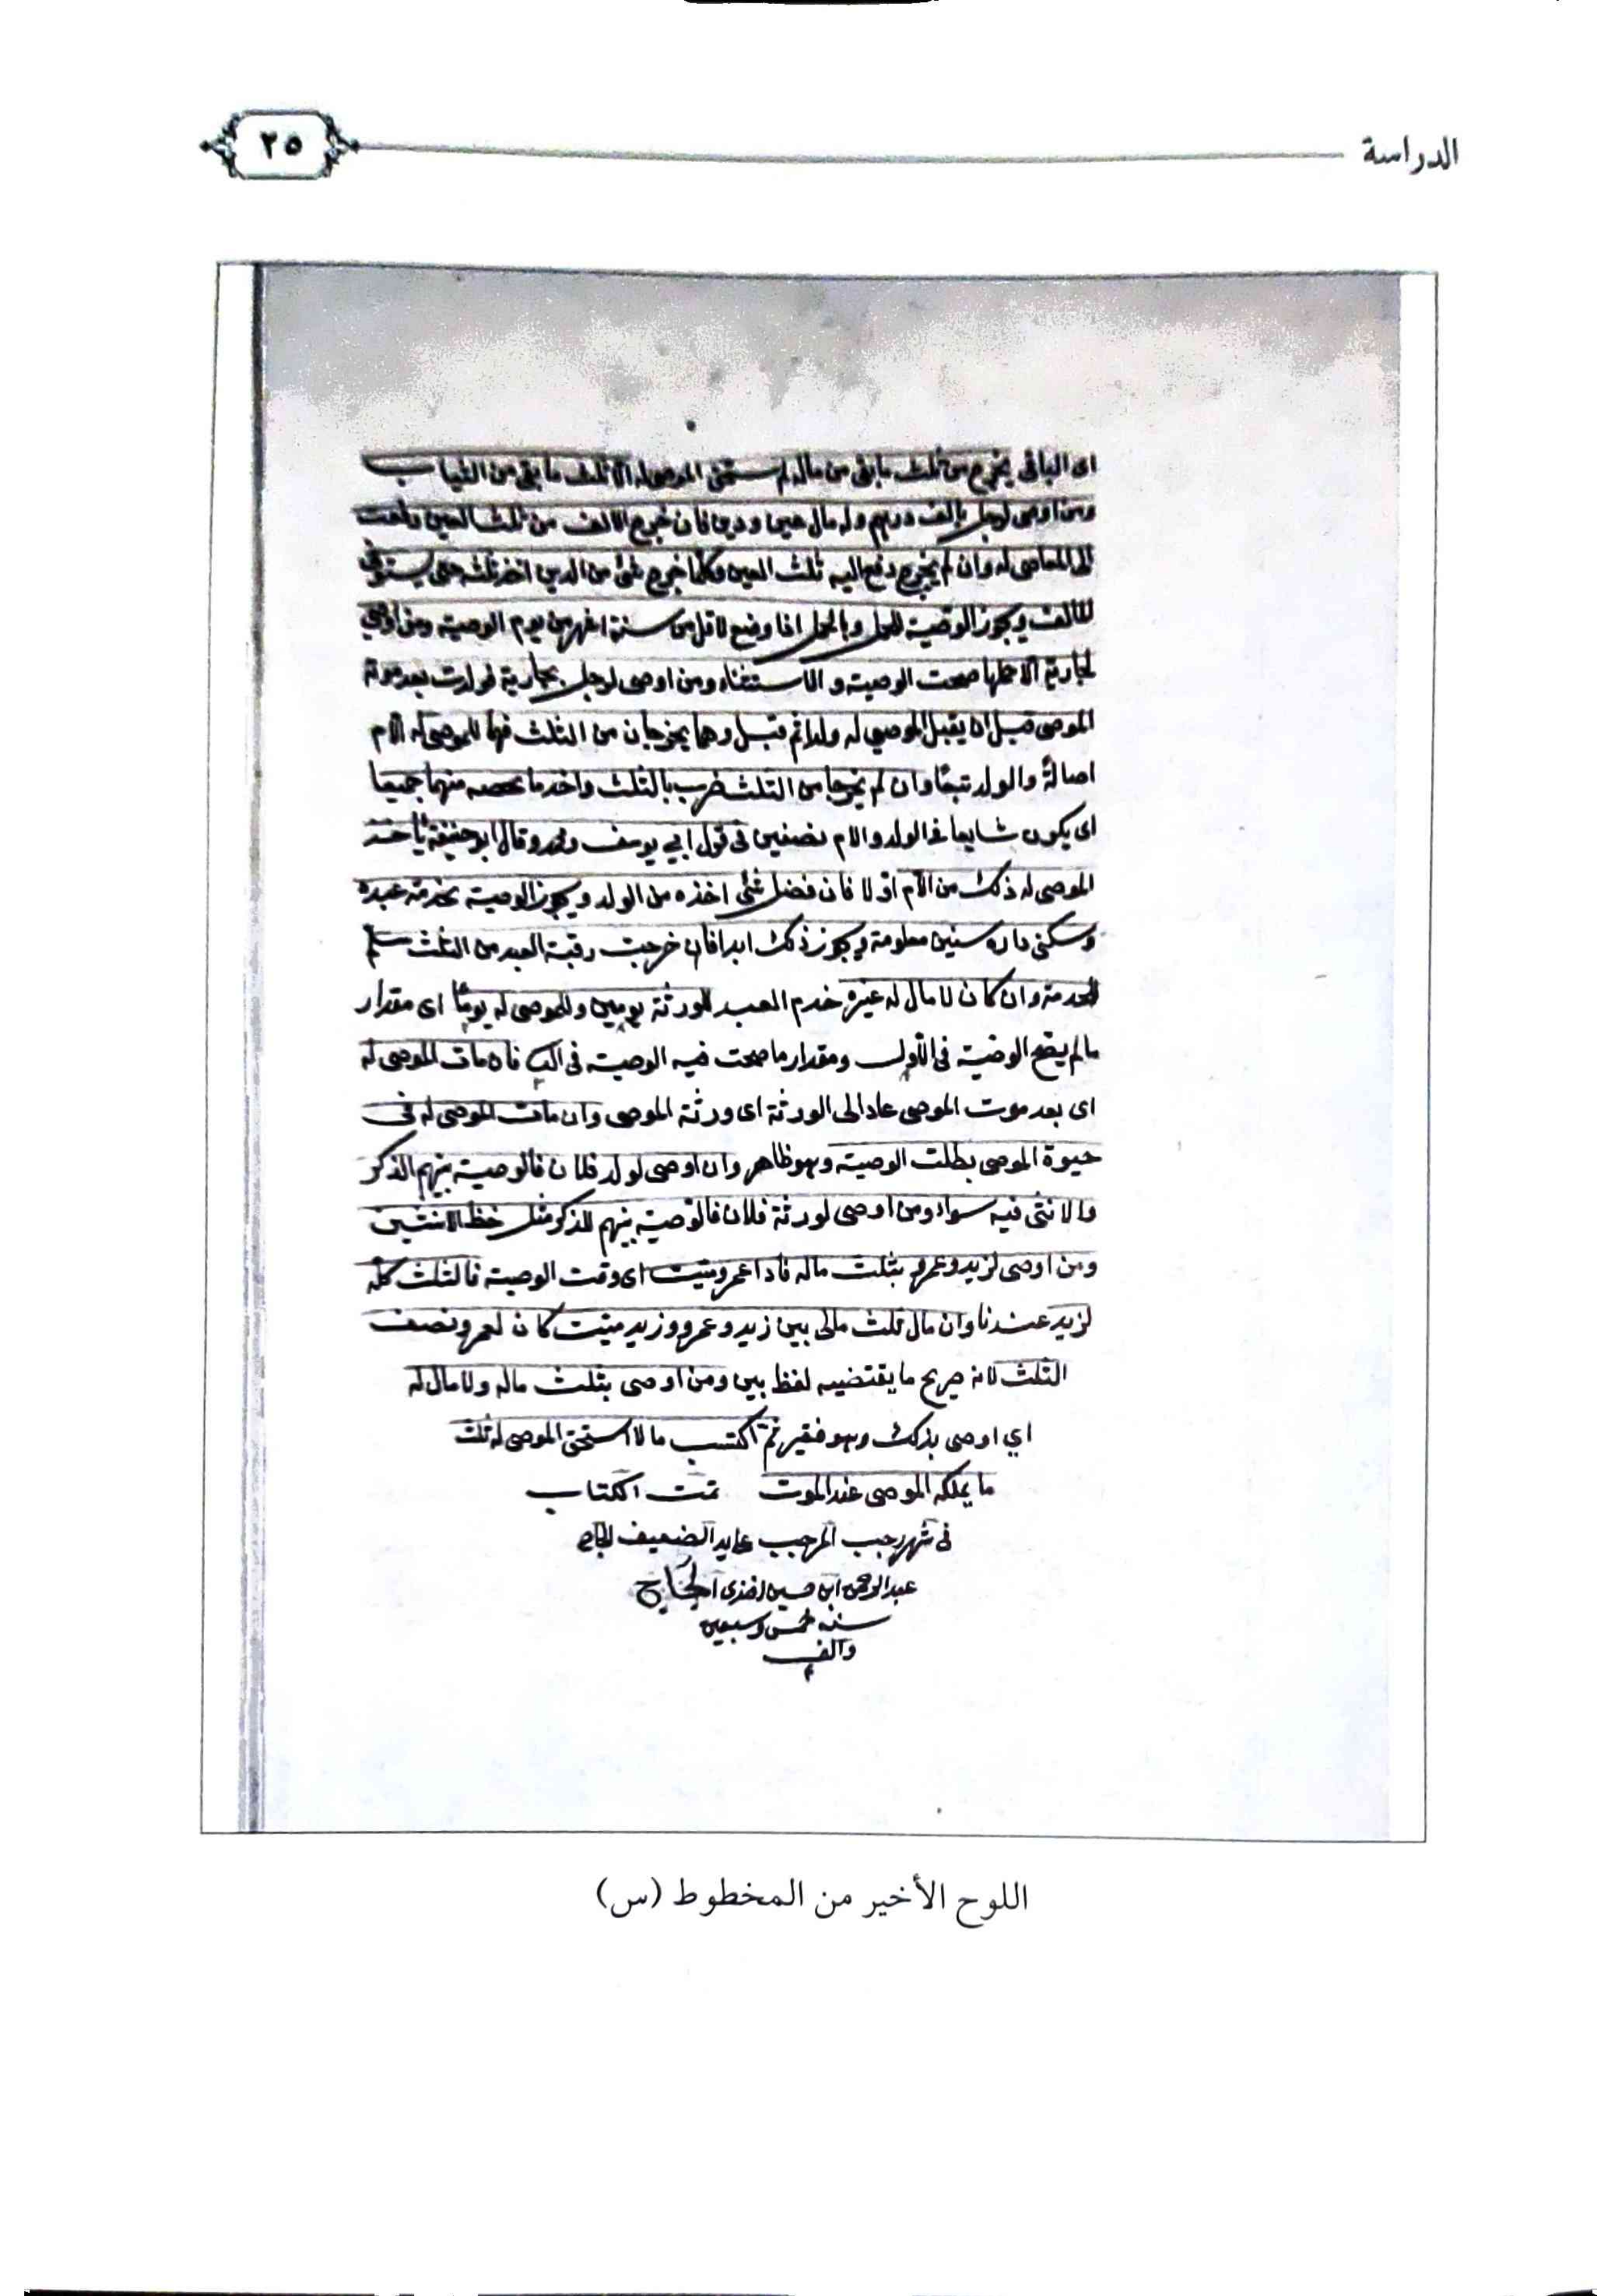 الدراسة
٢٥
اى الباقى يخرج من ثلث ما بقى من ماله لم يستحق الموصى له الا ثلث ما بقى من الثياب
ومن اوصى لرجل بالف درهم وله مال عين ودين فان خرج الالف من ثلث العين دفعت
الى الموصى له وان لم يخرج دفع اليه ثلث العين وكلما خرج شئ من الدين اخذ ثلثه حتى يستوفى
الالف ويجوز الوصية للحمل وبالحمل اذا وضع لاقل من ستة اشهر من يوم الوصية ومن اوصى
لجارية الا حملها صحت الوصية و الاستثناء ومن اوصى لرجل بجارية فولدت بعد موت
الموصى قبل ان يقبل الموصى له ولدا ثم قبل وهما يخرجان من الثلث فهما للموصى له الام
اصالة والولد تبعًا وان لم يخرجا من الثلث ضرب بالثلث واخذ ما يحصه منهما جميعا
اى يكون شايعا فى الولد والام نصفين فى قول ابي يوسف ومحمد وقال ابو حنيفة يأخذ
الموصى له ذلك من الأم اوّلا فان فضل شئ اخذه من الولد ويجوز الوصية بخدمة عبده
وسكنى داره سنين معلومة ويجوز ذلك ابدا فان خرجت رقبة العبد من الثلث سلم
للخدمة وان كان لا مال له غيره خدم العبد للورثة يومين وللموصى له يومًا اى مقدار
ما لم يصح الوصية فى الأول ومقدار ما صحت فيه الوصية فى فان مات الموصى له
اى بعد موت الموصى عاد الى الورثة اى ورثة الموصى وان مات الموصى له فى
حيوة الموصى بطلت الوصية وهو ظاهر وان اوصى لولد فلان فالوصية بينهم الذكر
والانثى فيه سواء ومن اوصى لورثة فلان فالوصية بينهم للذكر مثل حظ الانثيين
ومن اوصى لزيد وعمرو بثلث ماله فاذا عمرو ميت اى وقت الوصية فالثلث كله
لزيد عندنا وان مال ثلث مالى بين زيد وعمرو وزيد ميت كان لعمرو نصف
الثلث لانه صريح ما يقتضيه لفظ بين ومن اوصى بثلث ماله ولا مال له
اي اوصى بذلك وهو فقير ثم اكتسب مالا استحق الموصى له ثلث
ما يملكه الموصى عند الموت تمت الكتاب
فى شهر رجب المرجب الضعيف
عبد الرحمن ابن حسين افندى الحاج
سنه خمس وسبعين
والف
اللوح الأخير من المخطوط (س)